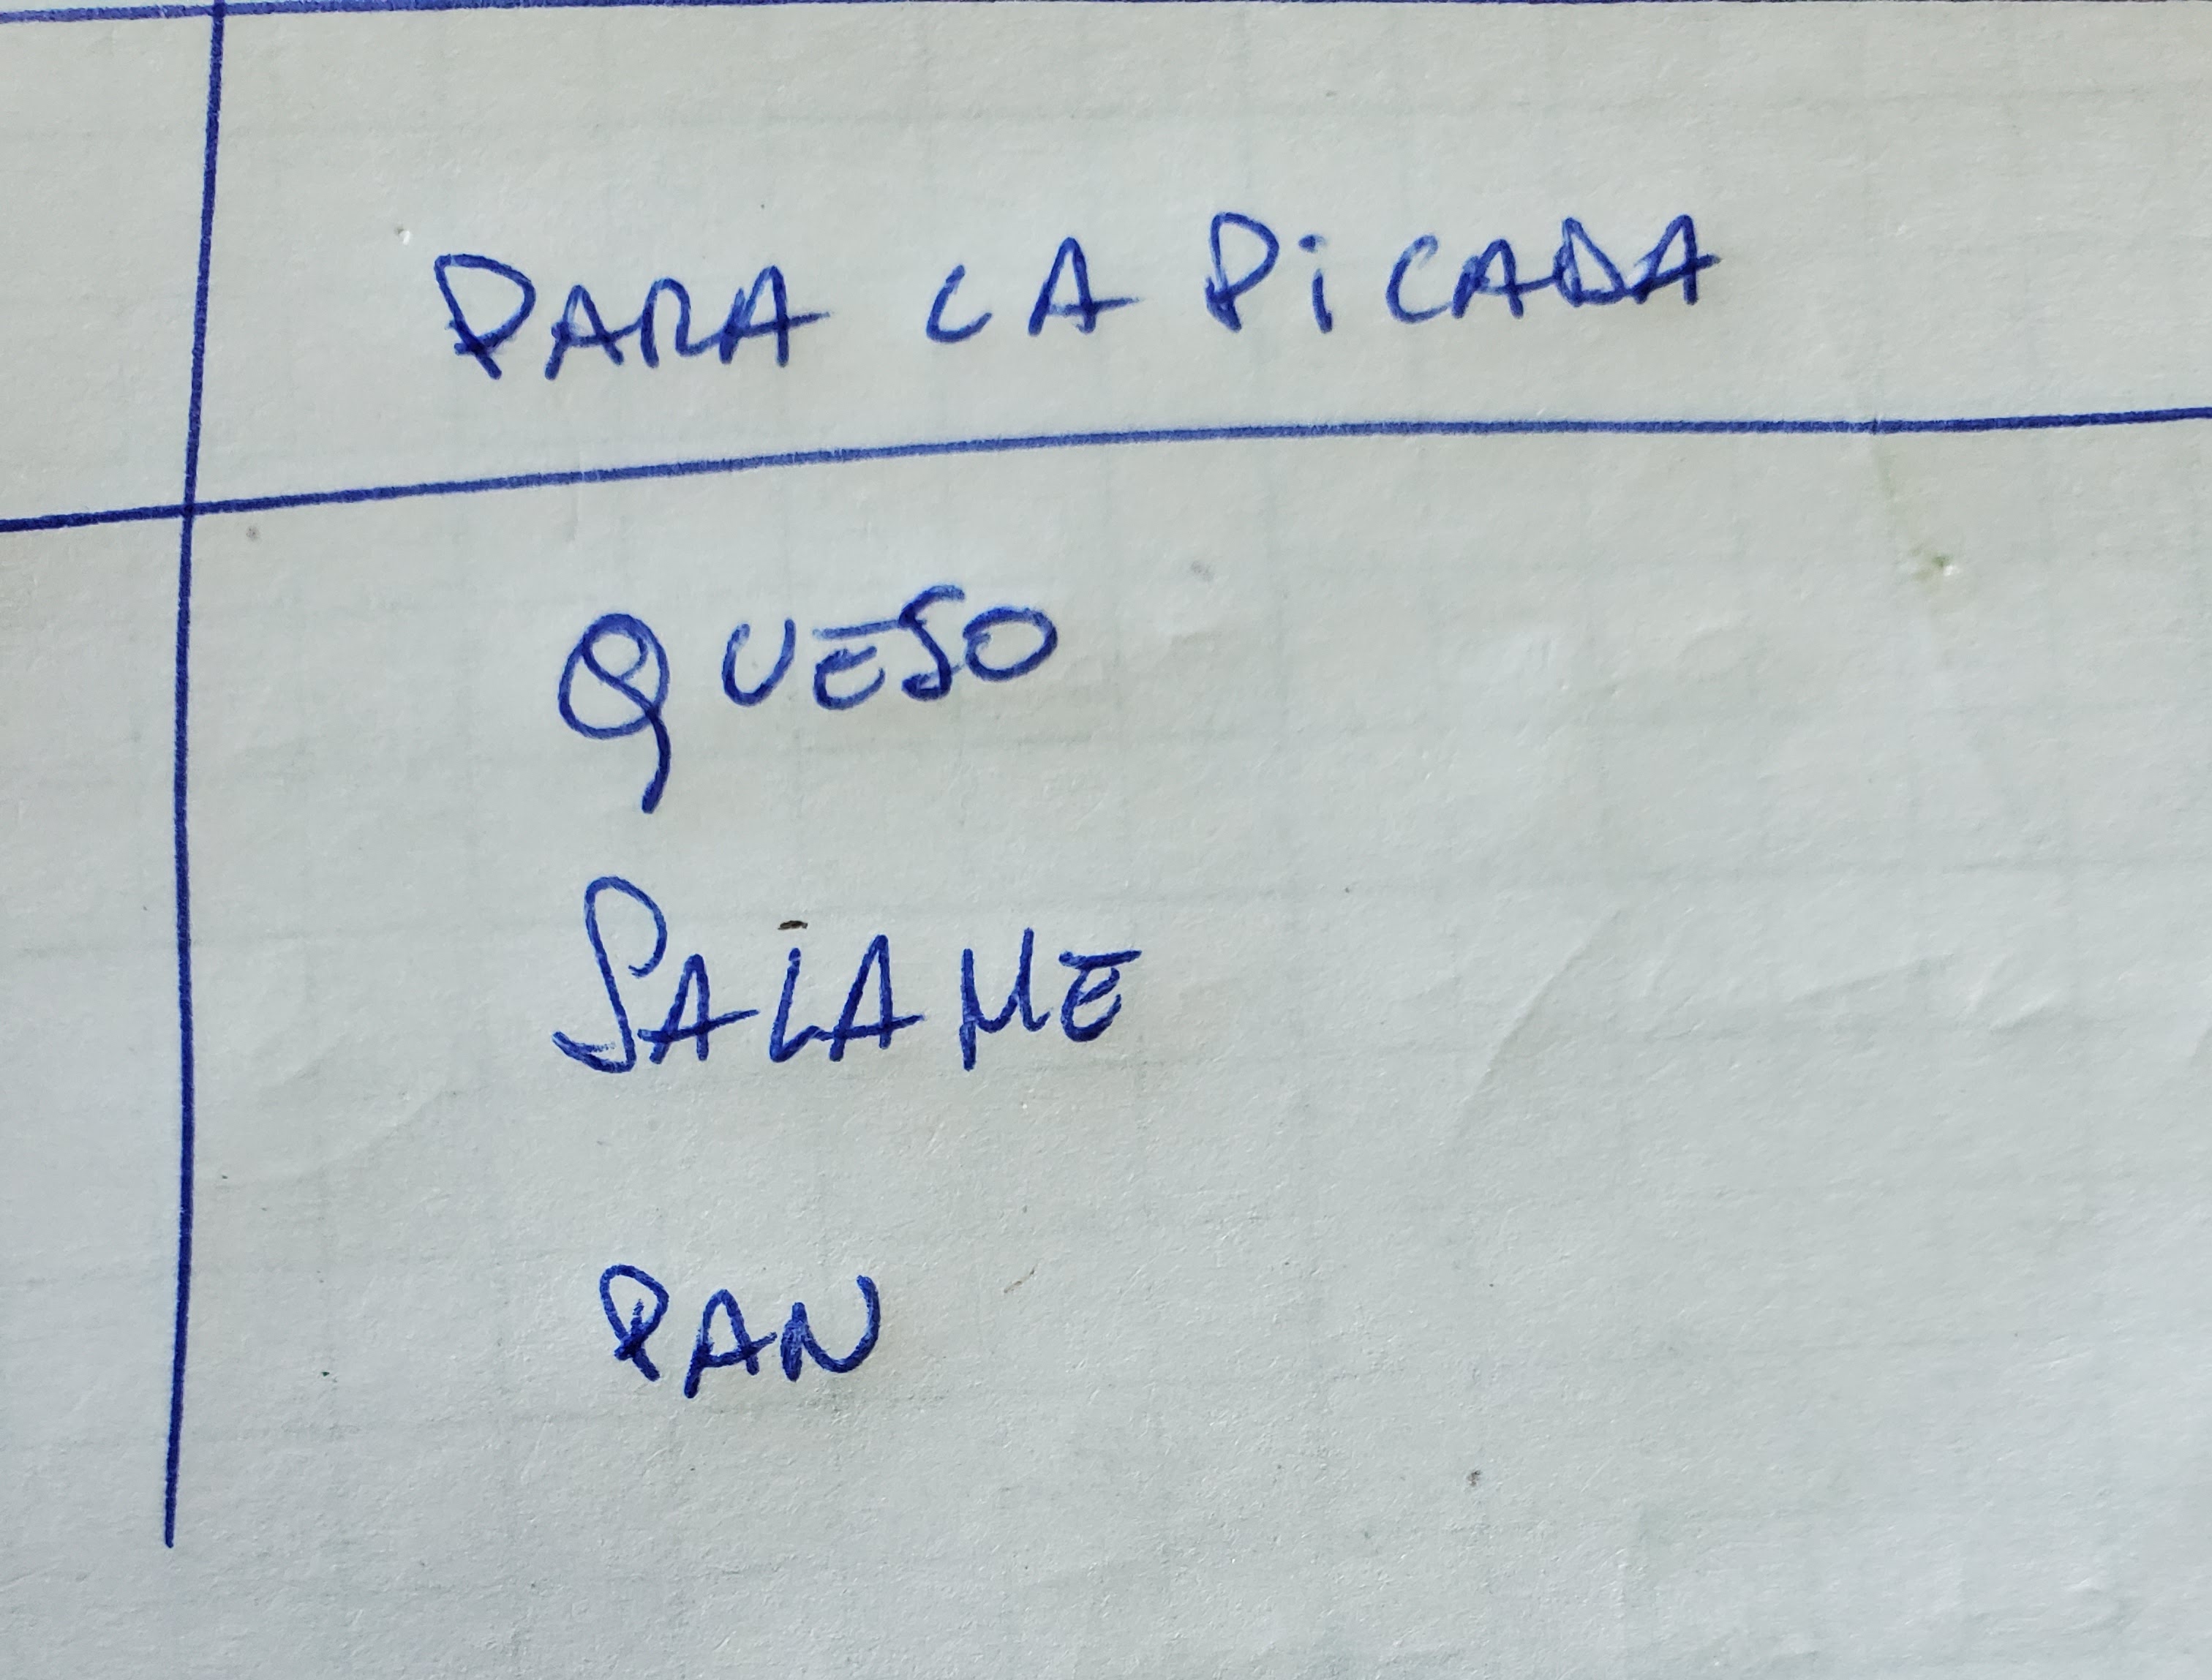 PARA LA PiCADA
QUESO
SALAME
PAN